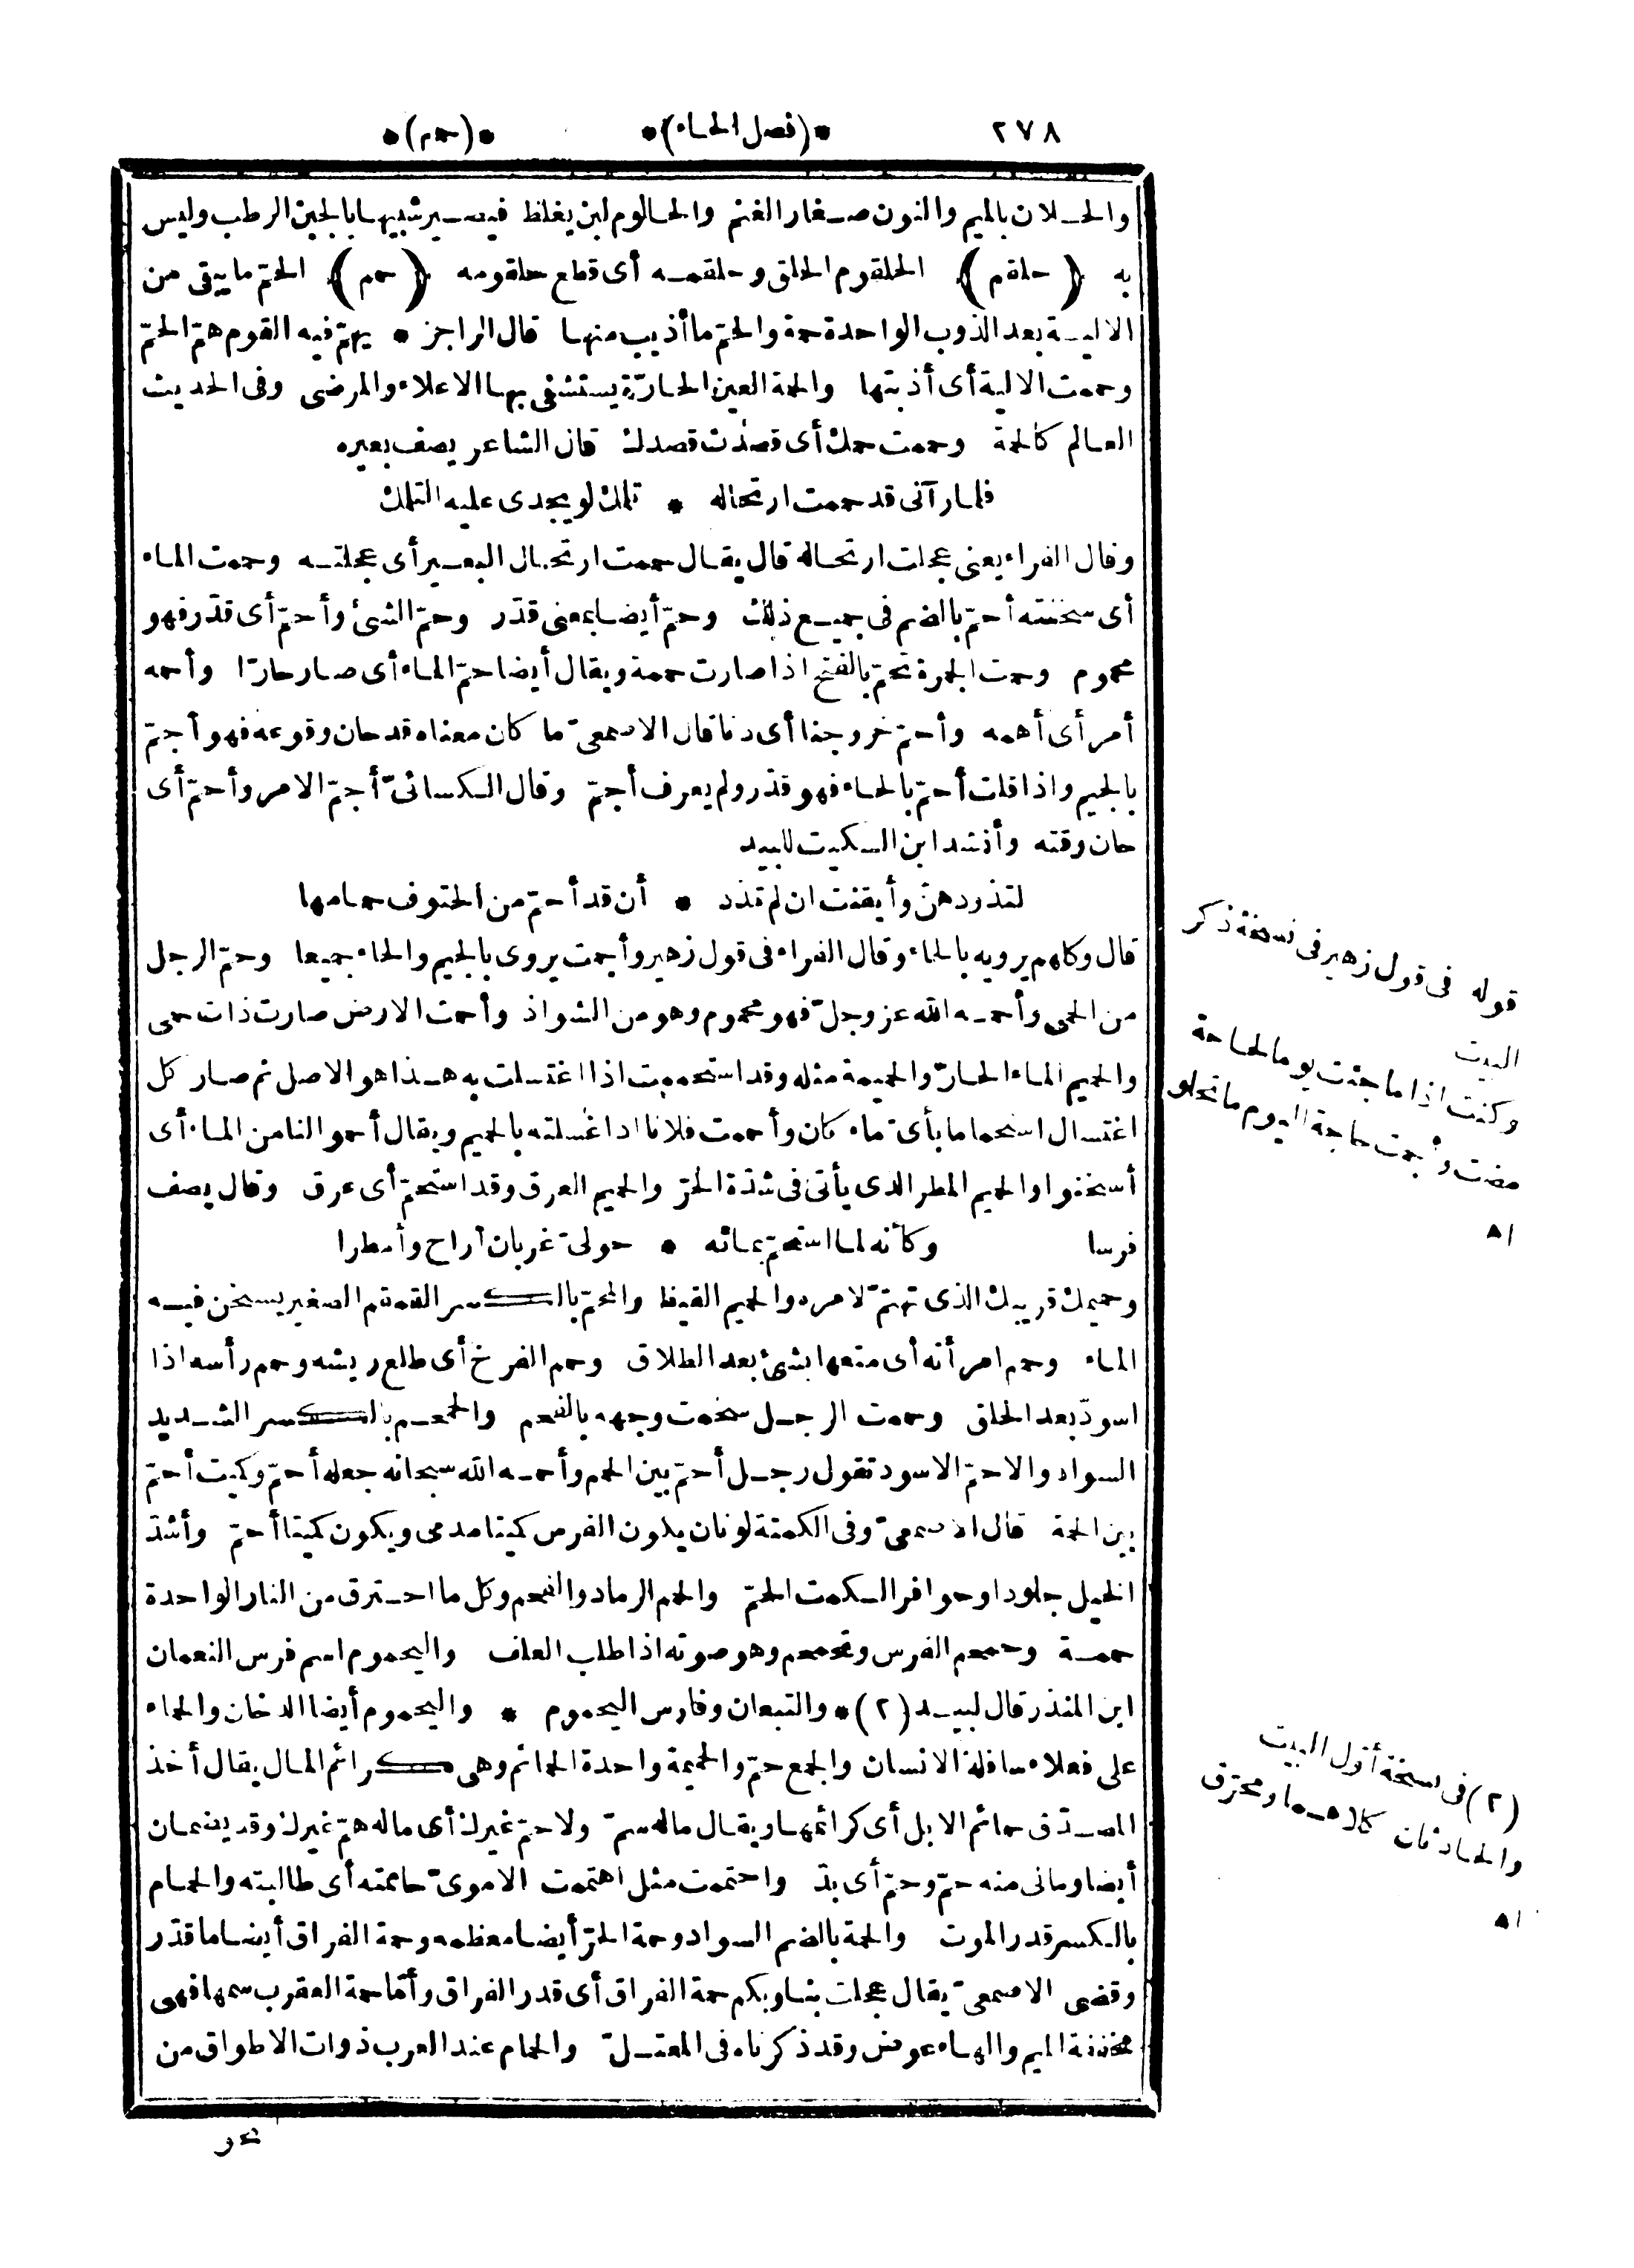 ٢٧٨ *(فصل الحاء)* *(حمم)*
والحلان بالميم والنون صغار الغنم والحالوم لبن يغلظ فيصير شبيها بالجبن الرطب وليس
به (حلقم) الحلقوم الحلق وحلقمه أى قطع حلقومه (حمم) الحمّ ما يبقى من
الالية بعد الذوب الواحدة حمة والحمّ ما أذيب منها قال الراجز * يهمّ فيه القوم همّ الحمّ
وحممت الالية أى أذبتها والحمة العين الحارّة يستشفى بها الاعلاء والمرضى وفى الحديث
العالم كالحمة وحممت حمك أى قصدت قصدك قال الشاعر يصف بعيره
فلما رآنى قد حممت ارتحاله * تلمك لو يجدى عليه التلمك
وقال الفراء يعنى عجلت ارتحاله قال يقال حممت ارتحال البعير أى عجلته وحممت الماء
أى سخنته أحمّ بالضم فى جميع ذلك وحمّ أيضا بمعنى قدّر وحمّ الشئ وأحمّ أى قدّر فهو
محموم وحمت الجمرة تحمّ بالفتح اذا صارت حممة ويقال أيضا حمّ الماء أى صار حارّا وأحمه
أمر أى أهمه وأحمّ خروجنا أى دنا قال الاصمعىّ ما كان معناه قد حان وقوعه فهو أجمّ
بالجيم واذا قلت أحمّ بالحاء فهو قدّر ولم يعرف أجمّ وقال الكسائىّ أجمّ الامر وأحمّ أى
حان وقته وأنشد ابن السكيت للبيد
لتذودهنّ وأيقنت ان لم تذد * أن قد أحمّ من الحتوف حمامها
قال وكلهم يرويه بالحاء وقال الفراء فى قول زهير وأجمت يروى بالجيم والحاء جميعا وحمّ الرجل
من الحمى وأحمه الله عز وجلّ فهو محموم وهو من الشواذ وأحمت الارض صارت ذات حمى
والحميم الماء الحارّ والحميمة مثله وقد استحممت اذا اغتسلت به هذا هو الاصل ثم صار كل
اغتسال استحماما بأىّ ماء كان وأحممت فلانا اذا غسلته بالحميم ويقال أحموا لنا من الماء أى
أسخنوا والحميم المطر الذى يأتى فى شدّة الحرّ والحميم العرق وقد استحمّ أى عرق وقال يصف
فرسا وكأنه لما استحمّ بمائه * حولىّ غربان أراح وأمطرا
وحميمك قريبك الذى تهتمّ لامره والحميم القيظ والمحمّ بالكسر القمقم الصغير يسخن فيه
الماء وحمم امرأته أى متعها بشئ بعد الطلاق وحمم الفرخ أى طلع ريشه وحمم رأسه اذا
اسودّ بعد الحلق وحممت الرجل سخمت وجهه بالفحم والحمحم بالكسر الشديد
السواد والاحمّ الاسود تقول رجل أحمّ بين الحمم وأحمه الله سبحانه جعله أحمّ وكميت أحمّ
بين الحمة قال الاصمعىّ وفى الكمتة لونان يكون الفرس كميتا مدمى ويكون كميتا أحمّ وأشدّ
الخيل جلودا وحوافر الكمت الحمّ والحمم الرماد والفحم وكل ما احترق من النار الواحدة
حممة وحمحم الفرس وتحمحم وهو صوته اذا طلب العلف واليحموم اسم فرس النعمان
ابن المنذر قال لبيد (٢) * والتبعان وفارس اليحموم * واليحموم أيضا الدخان والحماء
على فعلاء سافلة الانسان والجمع حمّ والحميمة واحدة الحمائم وهى كرائم المال يقال أخذ
المصدّق حمائم الابل أى كرائمها ويقال ماله سمّ ولا حمّ غيرك أى ماله همّ غيرك وقد يضمان
أيضا ومالى منه حمّ وحمّ أى بدّ واحتممت مثل اهتممت الاموىّ حاممته أى طالبته والحمام
بالكسر قدر الموت والحمة بالضم السواد وحمة الحرّ أيضا معظمه وحمة الفراق أيضا ما قدّر
وقضى الاصمعىّ يقال عجلت بنا وبكم حمة الفراق أى قدر الفراق وأمّا حمة العقرب سمها فهى
مخففة الميم والهاء عوض وقد ذكرناه فى المعتلّ والحمام عند العرب ذوات الاطواق من
نحو
قوله فى قول زهير فى نسخة ذكر
البيت
وكنت اذا ما جئت يوما لحاجة
مضت وأجمت حاجة اليوم ما تخلو
اه
(٢) فى نسخة أوّل البيت
والحادثان كلاهما ومحرّق
اه